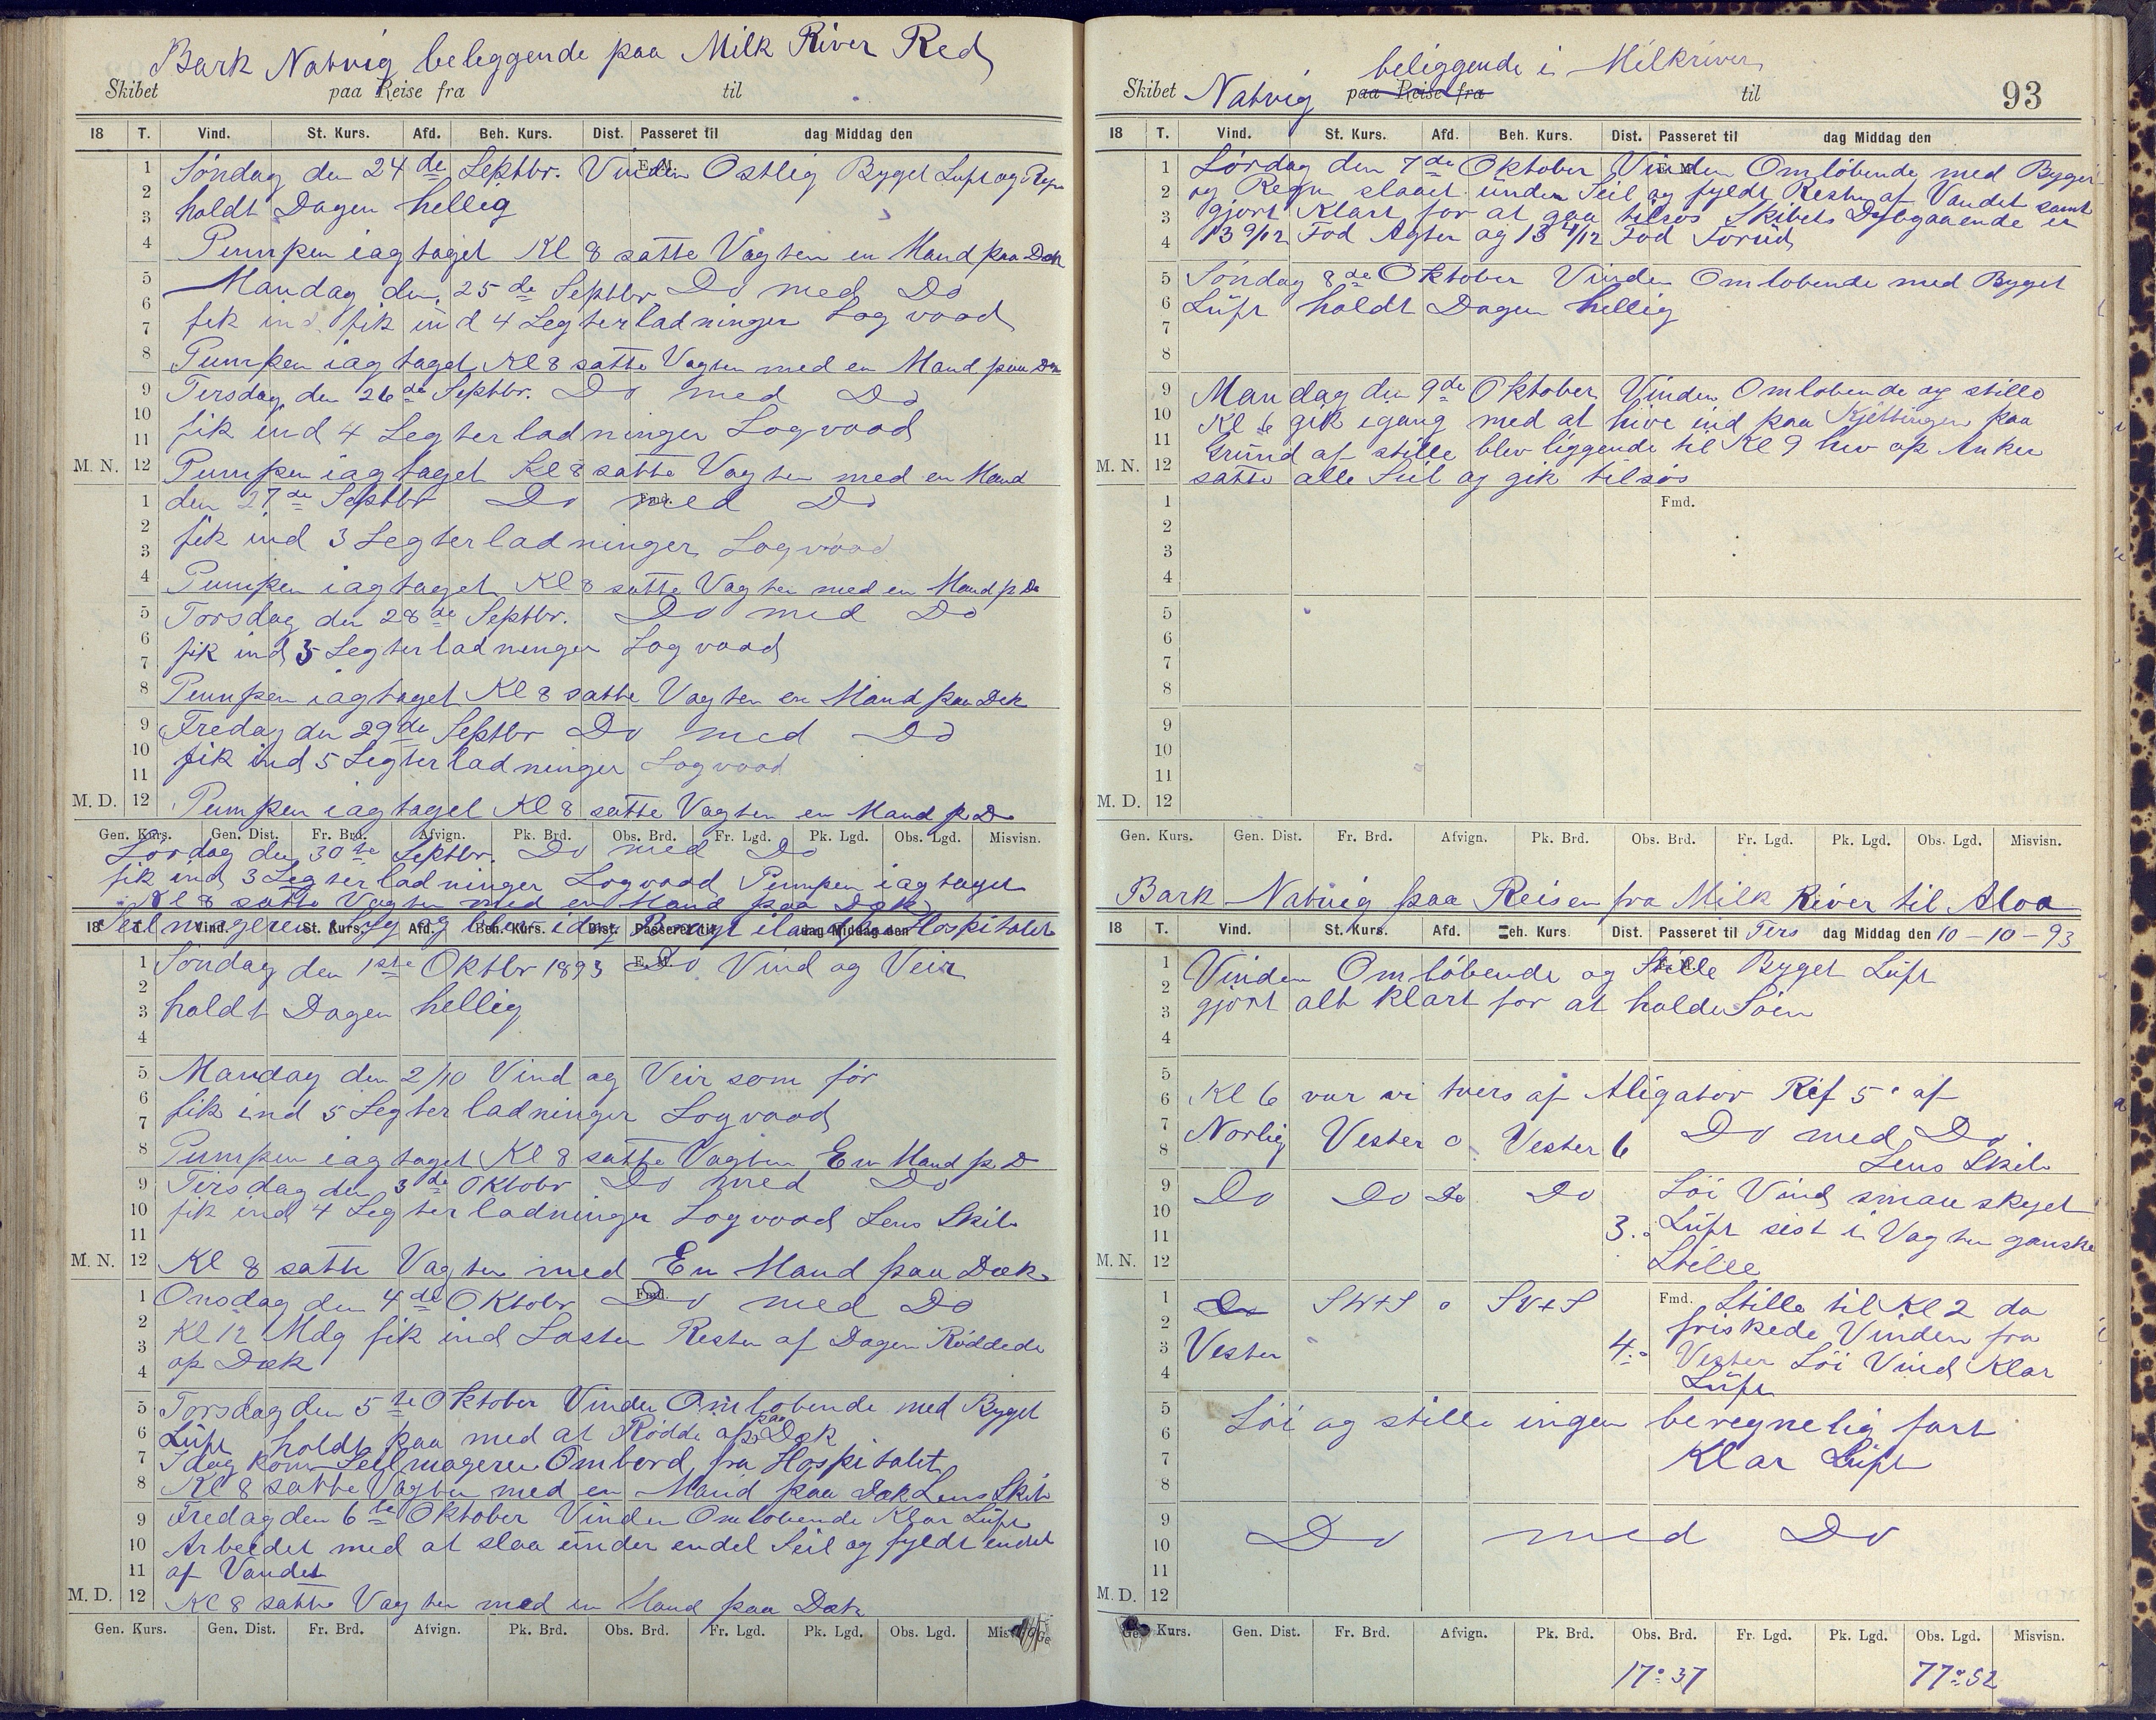 Bark Natvig beleggende paa Milk River Red
Skibet paa Reise fra til
18 T. Vind. St. Kurs. Afd. Beh. Kurs. Dist. Passeret til dag Middag den
E. M.
1 Søndag den 24de Septbr. Vinden Ostlig Byget Luft og Regn
2
3 holdt Dagen hellig
4 Pumpen iagtaget Kl 8 satte Vagten en Mand paa Dæk
5 Mandag den 25de Septbr Do med Do
6
7 fik ind fik ind 4 Legterladninger Logvood
8 Pumpen iagtaget Kl 8 satte Vagten med en Mand paa Dæk
9 Tirsdag den 26de Septbr. Do med Do
10
11 fik ind 4 Legterladninger Logvood
M. N. 12 Pumpen iagtaget Kl 8 satte Vagten med en Mand
Fmd.
1 den 27de Septbr Do med Do
2
3 fik ind 3 Legterladninger Logvood
4 Pumpen iagtaget Kl 8 satte Vagten med en Mand p D
5 Torsdag den 28de Septbr. Do med Do
6
7 fik ind 5 Legterladninger Logvood
8 Pumpen iagtaget Kl 8 satte Vagten en Mand paa Dæk
9 Fredag den 29de Septbr Do med Do
10
11 fik ind 5 Legterladninger Logvood
M. D. 12 Pumpen iagtaget Kl 8 satte Vagten en Mand p. D
Gen. Kurs. Gen. Dist. Fr. Brd. Afvign. Pk. Brd. Obs. Brd. Fr. Lgd. Pk. Lgd. Obs. Lgd. Misvisn.
Lørdag den 30te Septbr. Do med Do
fik ind 3 Legterladninger Logvood Pumpen iagtaget
Kl 8 satte Vagten med en Mand paa Dæk
Seilmageren Syg og blev idag bragt iland paa Hospitalet
18 T. Vind. St. Kurs. Afd. Beh. Kurs. Dist. Passeret til dag Middag den
E. M.
1 Søndag den 1ste Oktbr 1893 Do Vind og Veir
2
3 holdt Dagen hellig
4
5 Mandag den 2/10 Vind og Veir som før
6
7 fik ind 5 Legterladninger Logvood
8 Pumpen iagtaget Kl 8 satte Vagten En Mand p. D
9 Tirsdag den 3de Oktobr Do med Do
10 fik ind 4 Legterladninger Logvood Lens Skib
11
M. N. 12 Kl 8 satte Vagten med En Mand paa Dæk
Fmd.
1 Onsdag den 4de Oktobr Do med Do
2
3 Kl 12 Mdg fik ind Lasten Resten af Dagen Røddede
4 op Dæk
5 Torsdag den 5te Oktober Vinden Omløbende med Byget
6 Luft holdt paa med at Rødde op paa Dæk
7 Idag kom Seilmageren Ombord fra Hospitalet
8 Kl 8 satte Vagten med en Mand paa Dæk Lens Skib
9 Fredag den 6te Oktober Vinden Omløbende Klar Luft
10 Arbeidet med at slaa under endel Seil og fyldt endel
11 af Vandet
M. D. 12 Kl 8 satte Vagten med en Mand paa Dæk
Gen. Kurs. Gen. Dist. Fr. Brd. Afvign. Pk. Brd. Obs. Brd. Fr. Lgd. Pk. Lgd. Obs. Lgd.
beliggende i Milkriver
Skibet Natvig paa Reise fra til 93
18 T. Vind. St. Kurs. Afd. Beh. Kurs. Dist. Passeret til dag Middag den
E. M.
1 Lørdag den 7de Oktober Vinden Omløbende med Byger
2 og Regn slaaet under Seil og fyldt Resten af Vandet samt
3 gjort Klart for at gaa tilsøs Skibets Dybgaaende er
4 13 9/12 Fod Agter og 13 4/12 Fod Forud
5 Søndag 8de Oktober Vinden Omløbende med Byget
6 Luft holdt Dagen hellig
7
8
9 Mandag den 9de Oktober Vinden Omløbende og stille
10 Kl 6 gik igang med at hive ind paa Kjettingen paa
11 Grund af stille blev liggende til Kl 9 hev op Anker
M. N. 12 satte alle Seil og gik tilsøs
Fmd.
1
2
3
4
5
6
7
8
9
10
11
M. D. 12
Gen. Kurs. Gen. Dist. Fr. Brd. Afvign. Pk. Brd. Obs. Brd. Fr. Lgd. Pk. Lgd. Obs. Lgd. Misvisn.
Bark Natvig paa Reisen fra Milk River til Aloa
18 T. Vind. St. Kurs. Afd. Beh. Kurs. Dist. Passeret til Tirs dag Middag den 10-10-93
1 Vinden Omløbende og Stille Byget Luft
2
3 gjort alt klart for at holde Søen
4
5
6 Kl 6 var vi tvers af Aligator Rif 5' af
7 Norlig Vester o Vester 6 Do med Do
8 Lens Skib
9 Do Do Do Do Løi Vind smaa skyet
10
11 3. Luft sist i Vagten ganske
M. N. 12 Stille
1 Do SW+S o SV+S Fmd. Stille til Kl 2 da
2 friskede Vinden fra
3 Vester 4. Vester Løi Vind Klar
4 Luft
5 Løi og stille ingen beregnelig fart
6
7 Klar Luft
8
9
10 Do med Do
11
M. D. 12
Kurs. Gen. Dist. Fr. Brd. Afvign. Pk. Brd. Obs. Brd. Fr. Lgd. Pk. Lgd. Obs. Lgd. Misvisn.
17° 37 77° 52